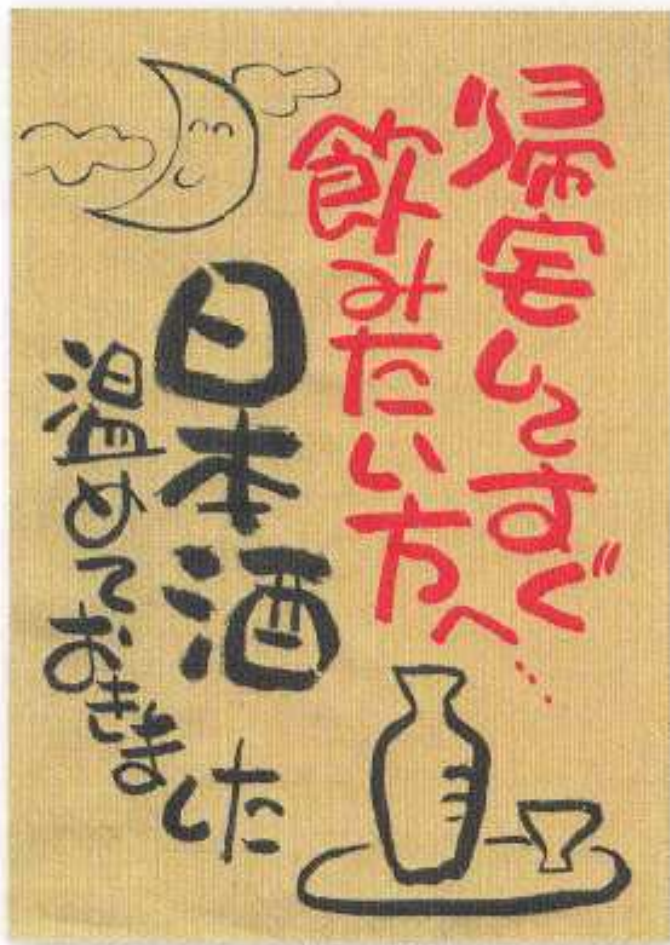 帰宅してすぐ
飲みたい方へ…
日本酒
温めておきました